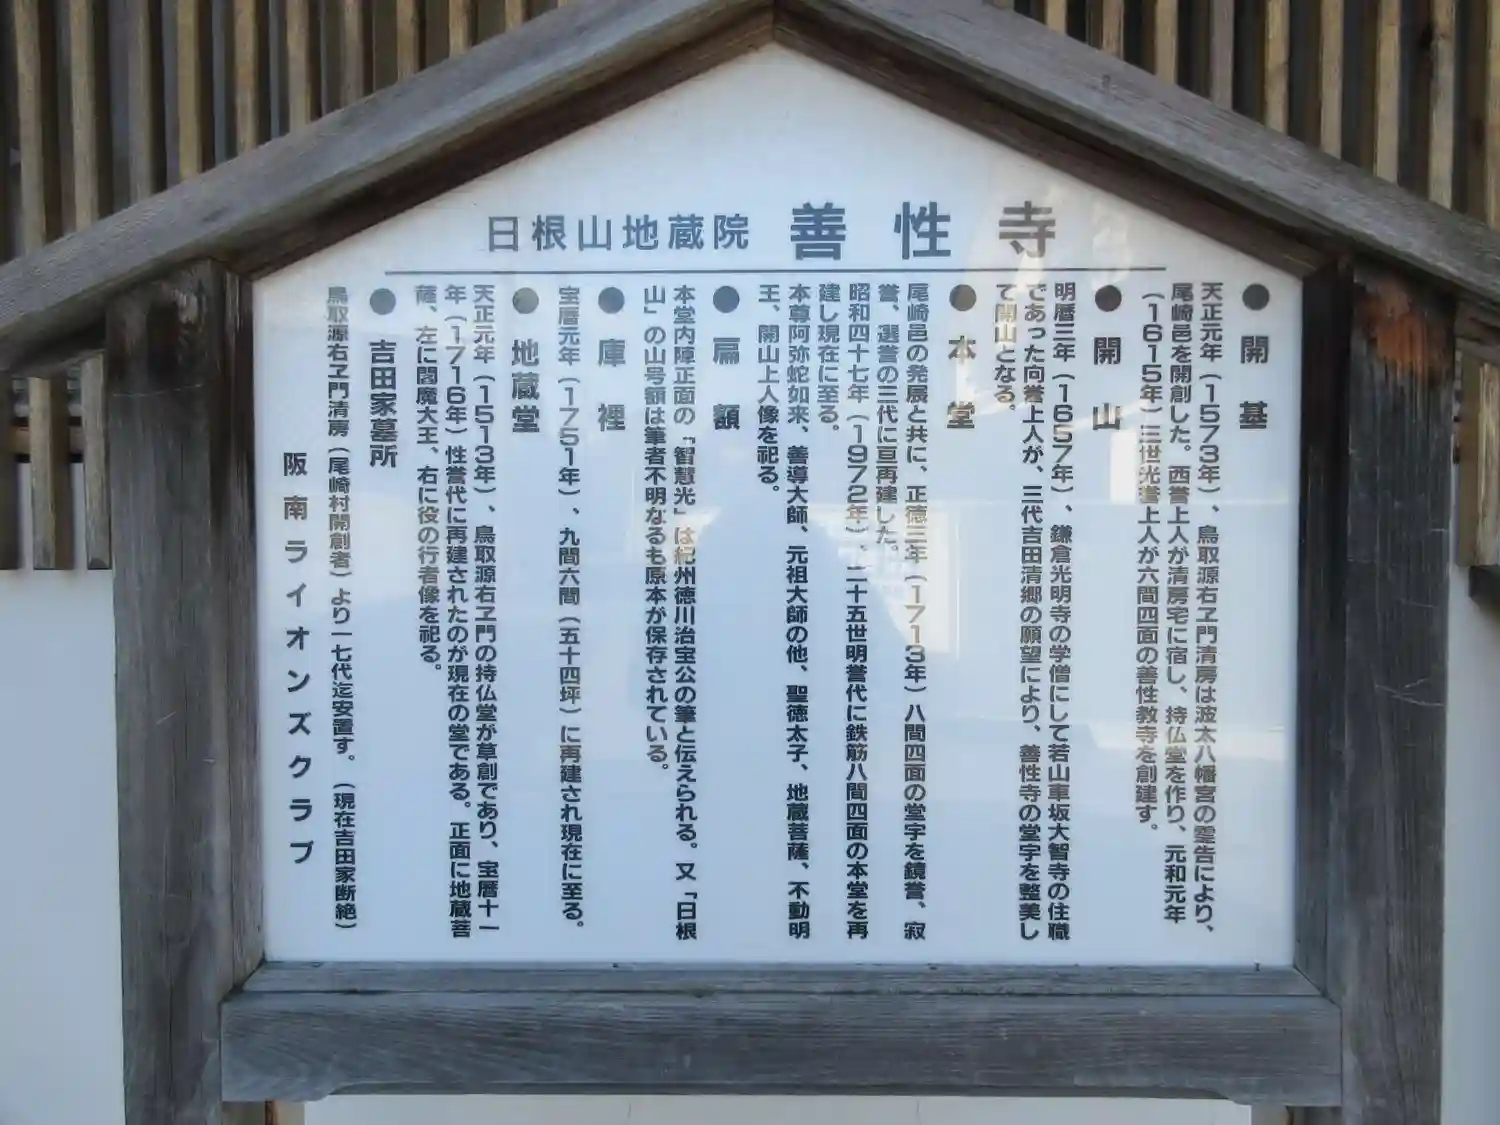 日根山地蔵院 善性寺
●開基
天正元年（１５７３年）、鳥取源右ヱ門清房は波太八幡宮の霊告により、
尾崎邑を開創した。西誉上人が清房宅に宿し、持仏堂を作り、元和元年
（１６１５年）三世光誉上人が六間四面の善性教寺を創建す。
●開山
明暦三年（１６５７年）、鎌倉光明寺の学僧にして若山車坂大智寺の住職
であった向誉上人が、三代吉田清郷の願望により、善性寺の堂宇を整美し
て開山となる。
●本堂
尾崎邑の発展と共に、正徳三年（１７１３年）八間四面の堂宇を鏡誉、寂
誉、選誉の三代に亘再建した。
昭和四十七年（１９７２年）、二十五世明誉代に鉄筋八間四面の本堂を再
建し現在に至る。
本尊阿弥蛇如来、善導大師、元祖大師の他、聖徳太子、地蔵菩薩、不動明
王、開山上人像を祀る。
●扁額
本堂内陣正面の「智慧光」は紀州徳川治宝公の筆と伝えられる。又「日根
山」の山号額は筆者不明なるも原本が保存されている。
●庫裡
宝暦元年（１７５１年）、九間六間（五十四坪）に再建され現在に至る。
●地蔵堂
天正元年（１５１３年）、鳥取源右ヱ門の持仏堂が草創であり、宝暦十一
年（１７１６年）性誉代に再建されたのが現在の堂である。正面に地蔵菩
薩、左に閻魔大王、右に役の行者像を祀る。
●吉田家墓所
鳥取源右ヱ門清房（尾崎村開創者）より一七代迄安置す。（現在吉田家断絶）
阪南ライオンズクラブ